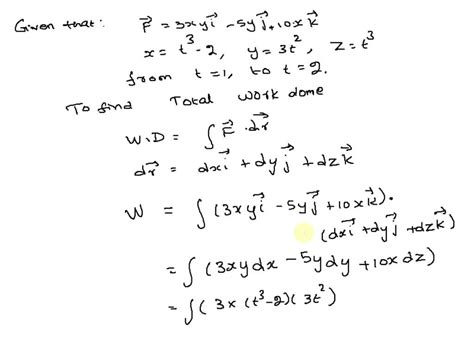 Given that: F⃗ = 3xyi⃗ - 5yj⃗ + 10xk⃗
x = t³-2, y = 3t², z = t³
from t=1, to t=2.
To find Total work done
W.D = ∫ F⃗·dr⃗
dr⃗ = dxi⃗ + dyj⃗ + dzk⃗
W = ∫ (3xyi⃗ - 5yj⃗ + 10xk⃗).
(dxi⃗ + dyj⃗ + dzk⃗)
= ∫ (3xydx - 5ydy + 10xdz)
= ∫ ( 3x (t³-2)( 3t² )